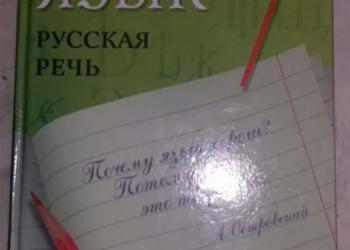 ЯЗЫК
РУССКАЯ
РЕЧЬ
Почему язык хорош?
Потому
это
А. Островский